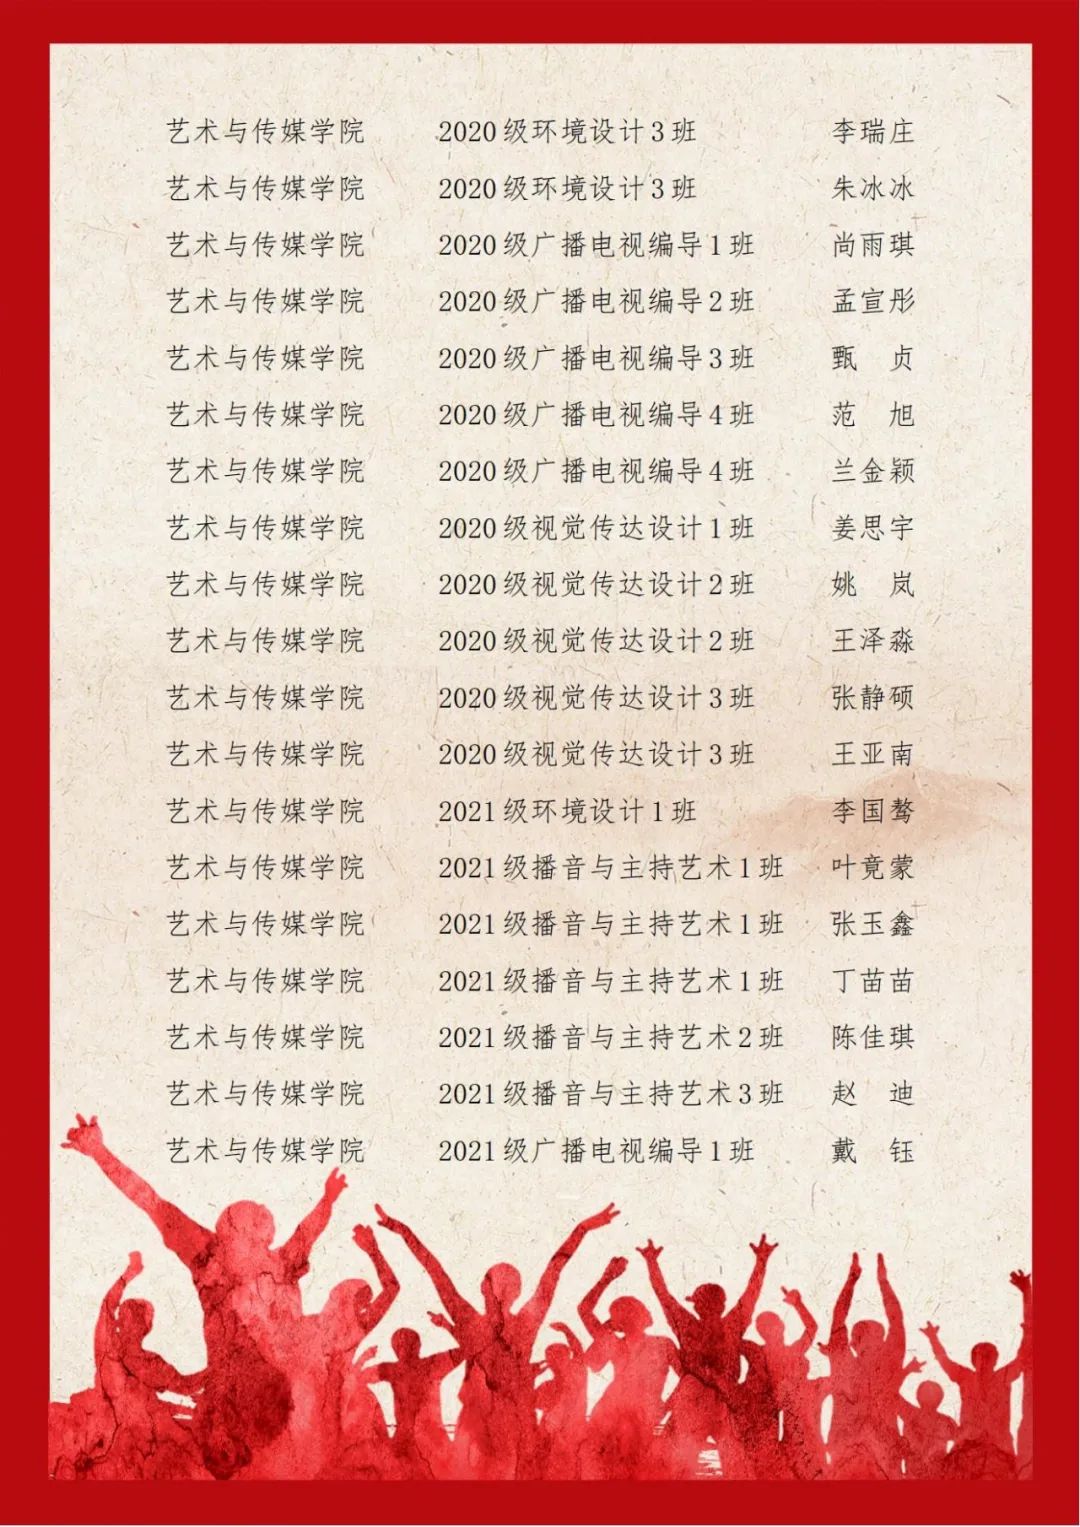 艺术与传媒学院 2020级环境设计3班 李瑞庄
艺术与传媒学院 2020级环境设计3班 朱冰冰
艺术与传媒学院 2020级广播电视编导1班 尚雨琪
艺术与传媒学院 2020级广播电视编导2班 孟宣彤
艺术与传媒学院 2020级广播电视编导3班 甄 贞
艺术与传媒学院 2020级广播电视编导4班 范 旭
艺术与传媒学院 2020级广播电视编导4班 兰金颖
艺术与传媒学院 2020级视觉传达设计1班 姜思宇
艺术与传媒学院 2020级视觉传达设计2班 姚 岚
艺术与传媒学院 2020级视觉传达设计2班 王泽淼
艺术与传媒学院 2020级视觉传达设计3班 张静硕
艺术与传媒学院 2020级视觉传达设计3班 王亚南
艺术与传媒学院 2021级环境设计1班 李国骜
艺术与传媒学院 2021级播音与主持艺术1班 叶竟蒙
艺术与传媒学院 2021级播音与主持艺术1班 张玉鑫
艺术与传媒学院 2021级播音与主持艺术1班 丁苗苗
艺术与传媒学院 2021级播音与主持艺术2班 陈佳琪
艺术与传媒学院 2021级播音与主持艺术3班 赵 迪
艺术与传媒学院 2021级广播电视编导1班 戴 钰